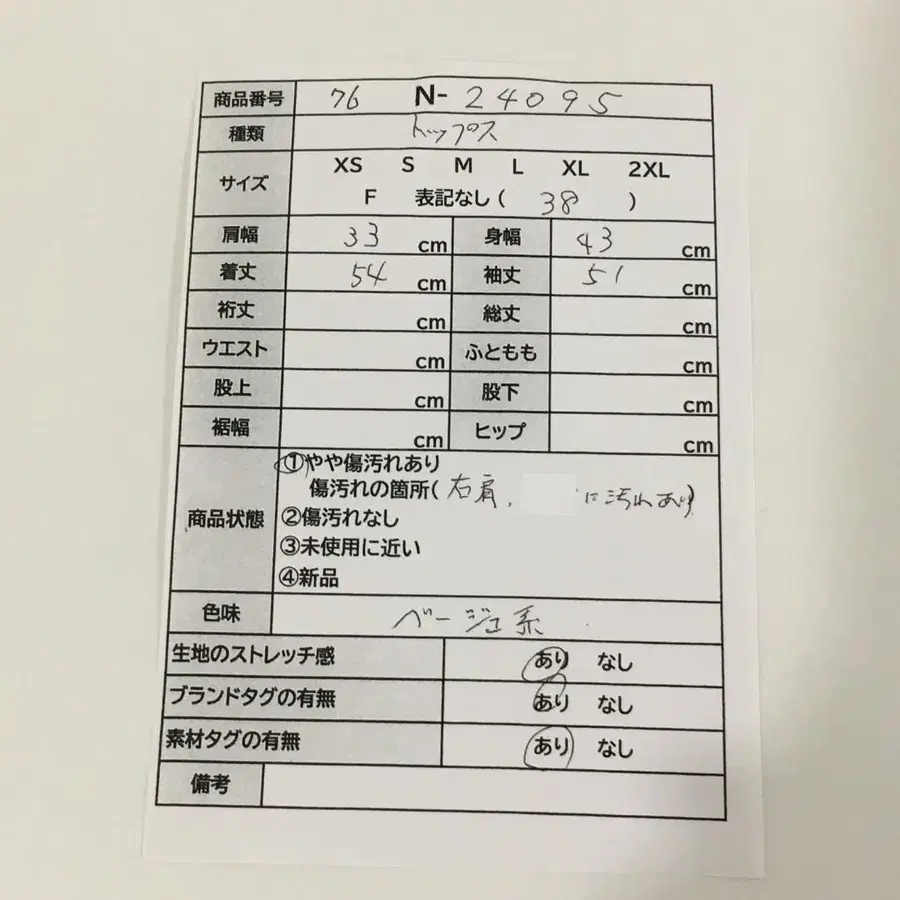 商品番号 76 N-24095
種類 トップス
サイズ XS S M L XL 2XL
F 表記なし( 38 )
肩幅 33 cm 身幅 43 cm
着丈 54 cm 袖丈 51 cm
裄丈 cm 総丈 cm
ウエスト cm ふともも cm
股上 cm 股下 cm
裾幅 cm ヒップ cm
商品状態 ①やや傷汚れあり
傷汚れの箇所( 右肩, に汚れあり)
②傷汚れなし
③未使用に近い
④新品
色味 ベージュ系
生地のストレッチ感 あり なし
ブランドタグの有無 あり なし
素材タグの有無 あり なし
備考